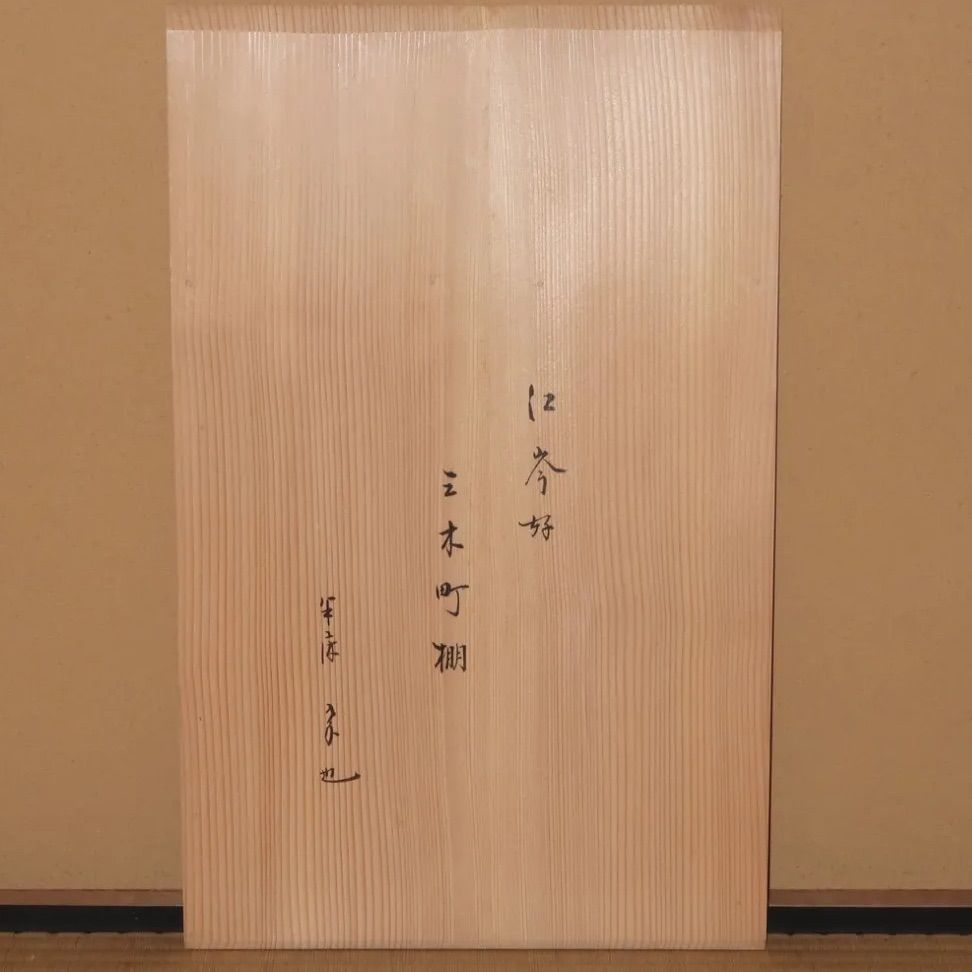 江岑好
三木町棚
半床 宗也